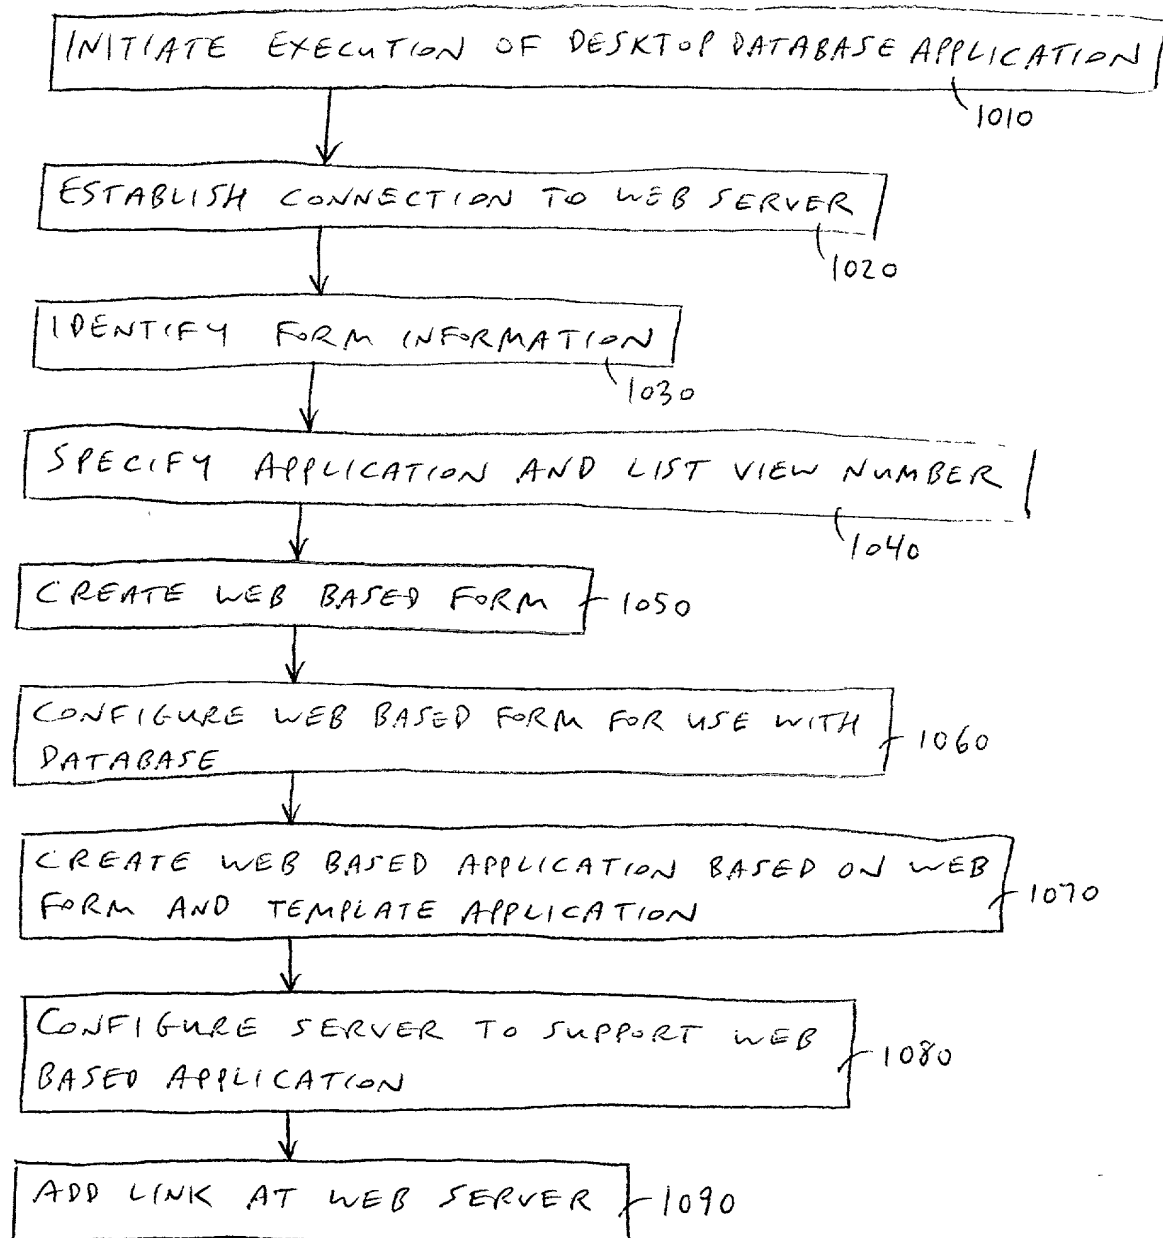 INITIATE EXECUTION OF DESKTOP DATABASE APPLICATION
1010
ESTABLISH CONNECTION TO WEB SERVER
1020
IDENTIFY FORM INFORMATION
1030
SPECIFY APPLICATION AND LIST VIEW NUMBER
1040
CREATE WEB BASED FORM 1050
CONFIGURE WEB BASED FORM FOR USE WITH
DATABASE
1060
CREATE WEB BASED APPLICATION BASED ON WEB
FORM AND TEMPLATE APPLICATION
1070
CONFIGURE SERVER TO SUPPORT WEB
BASED APPLICATION
1080
ADD LINK AT WEB SERVER 1090